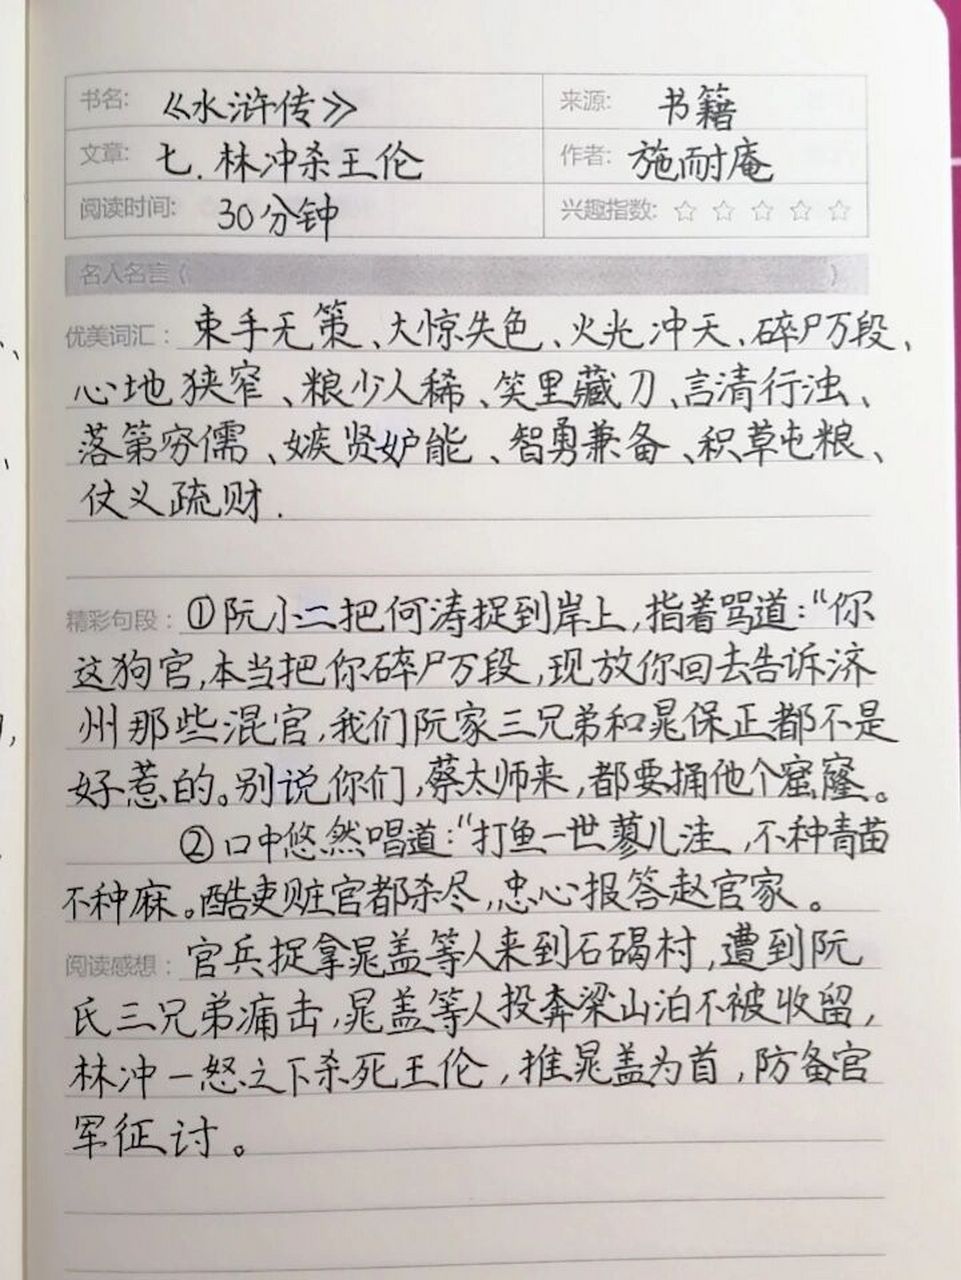 书名: 《水浒传》 来源: 书籍
文章: 七. 林冲杀王伦 作者: 施耐庵
阅读时间: 30分钟 兴趣指数: ☆ ☆ ☆ ☆ ☆
名人名言 ( )
优美词汇: 束手无策、大惊失色、火光冲天、碎尸万段、
心地狭窄、粮少人稀、笑里藏刀、言清行浊、
落第穷儒、嫉贤妒能、智勇兼备、积草屯粮、
仗义疏财.
精彩句段: ①阮小二把何涛捉到岸上,指着骂道:"你
这狗官,本当把你碎尸万段,现放你回去告诉济
州那些混官,我们阮家三兄弟和晁保正都不是
好惹的。别说你们,蔡太师来,都要捅他个窟窿。
②口中悠然唱道:"打鱼一世蓼儿洼,不种青苗
不种麻。酷吏赃官都杀尽,忠心报答赵官家。
阅读感想: 官兵捉拿晁盖等人来到石碣村,遭到阮
氏三兄弟痛击,晁盖等人投奔梁山泊不被收留,
林冲一怒之下杀死王伦,推晁盖为首,防备官
军征讨。